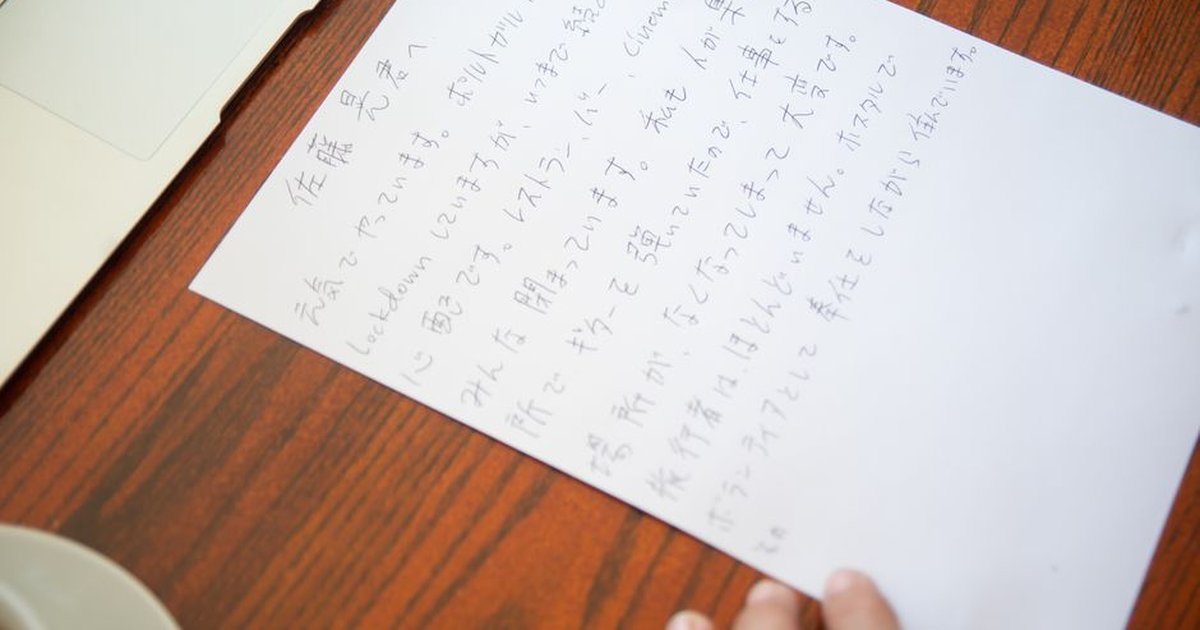 佐藤 晃君へ
元気でやっています。ポルトガル
Lockdown していますが、いつまで続
心配です。レストラン、バー、Cinem
みんな閉まっています。私も人が集
所でギターを弾いていたので、仕事をする
場所が、なくなってしまって大変です。
旅行者は、ほとんどいません。ホスタルで
ボランティアとして奉仕をしながら住んでいます。